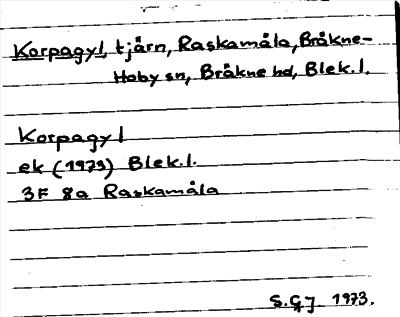 Korpagyl, tjärn, Raskamåla, Bräkne-
Hoby sn, Bräkne hd, Blek.l.
Korpagyl
ek (1973) Blek.l.
3F 8a Raskamåla
S.GJ 1973.